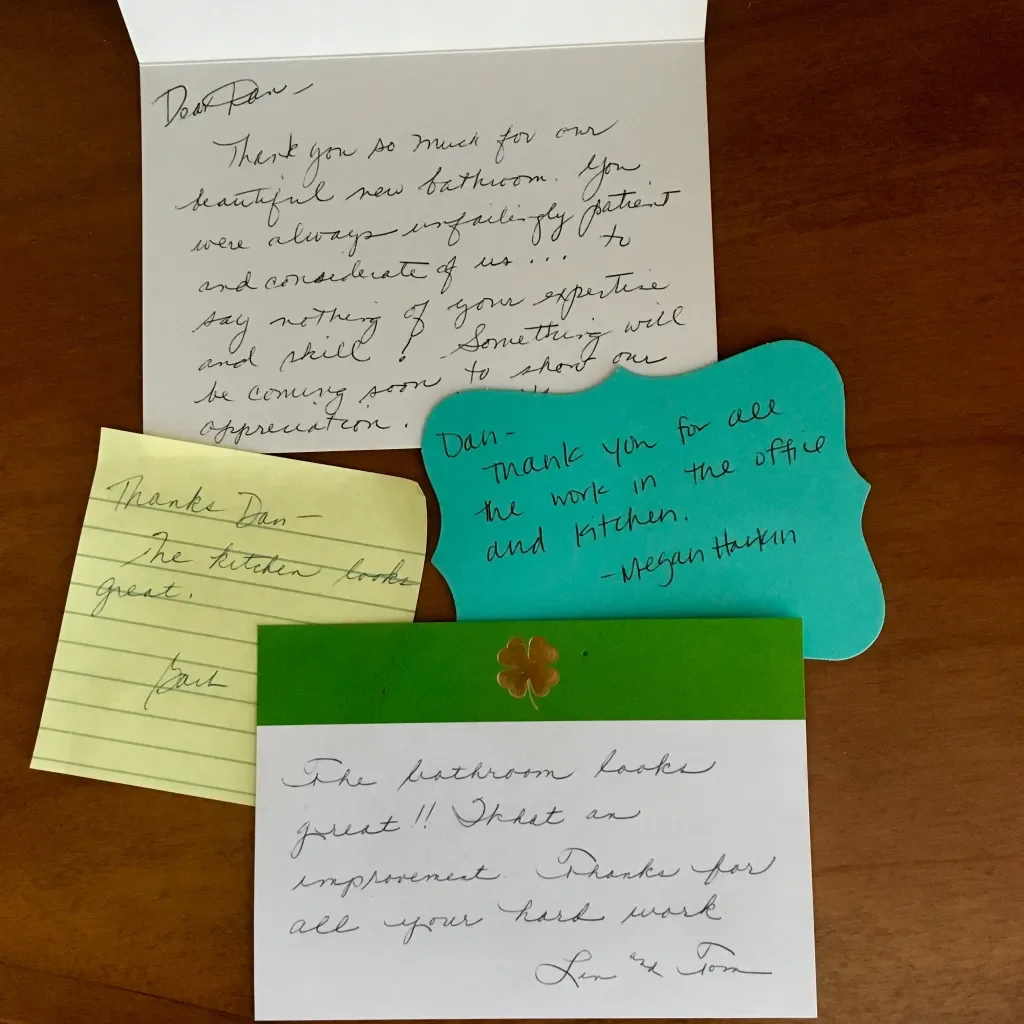 Dear Dan -
Thank you so much for our
beautiful new bathroom. You
were always unfailingly patient
and considerate of us ... to
say nothing of your expertise
and skill! Something will
be coming soon to show our
appreciation.
Dan-
Thank you for all
the work in the office
and kitchen.
-Megan Harkin
Thanks Dan-
The kitchen looks
great.
Barb
The bathroom looks
great!! What an
improvement Thanks for
all your hard work
and Tom